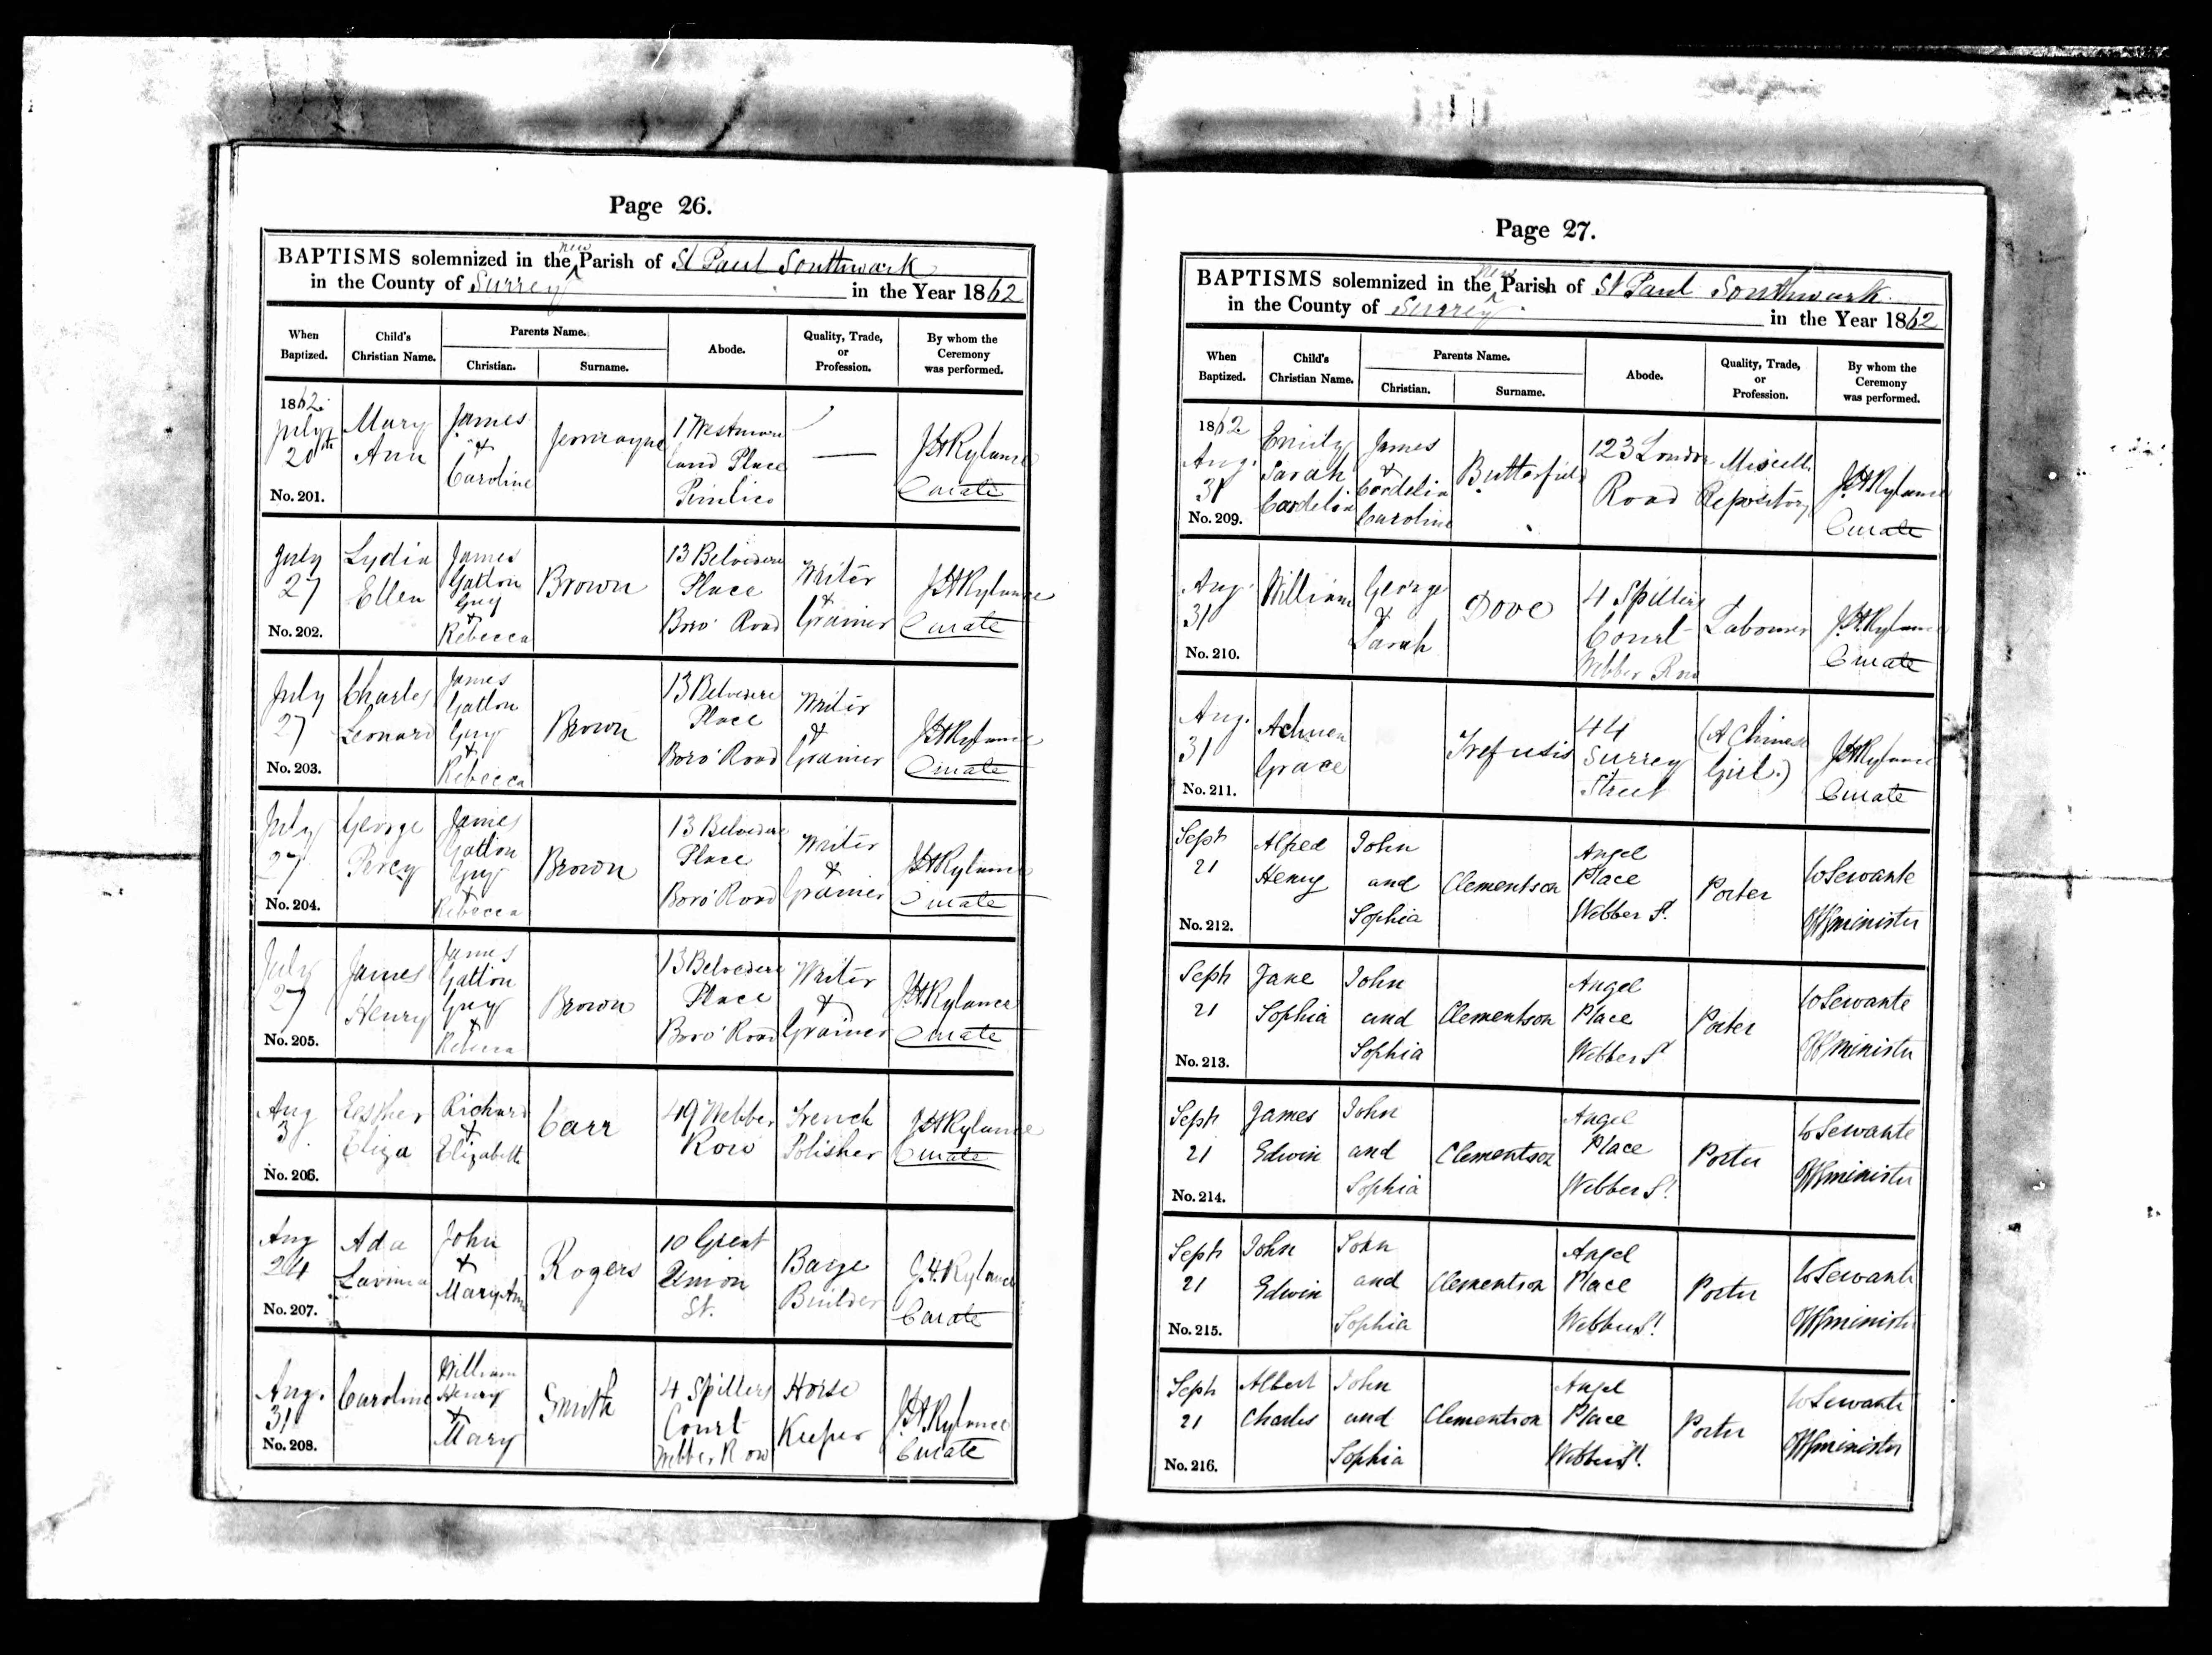 Page 26.
BAPTISMS solemnized in the new Parish of St Paul Southwark
in the County of Surrey in the Year 1862
When Baptized. Child's Christian Name. Parents Name. Christian. Surname. Abode. Quality, Trade, or Profession. By whom the Ceremony was performed.
1862. July 20th Mary Ann James & Caroline 1 Westmoreland Place Pimlico — J H Rylance Curate
No. 201.
July 27 Lydia Ellen James Gatton Guy & Rebecca Brown 13 Belvedere Place Boro' Road Writer & Grainer J H Rylance Curate
No. 202.
July 27 Charles Leonard James Gatton Guy & Rebecca Brown 13 Belvedere Place Boro' Road Writer & Grainer J H Rylance Curate
No. 203.
July 27 George Percy James Gatton Guy & Rebecca Brown 13 Belvedere Place Boro' Road Writer & Grainer J H Rylance Curate
No. 204.
July 27 James Henry James Gatton Guy & Rebecca Brown 13 Belvedere Place Boro' Road Writer & Grainer J H Rylance Curate
No. 205.
Aug 3 Eesther Eliza Richard & Elizabeth Carr 49 Webber Row French Polisher J H Rylance Curate
No. 206.
Aug 24 Ada Lavinia John & Mary Ann Rogers 10 Great Union St. Barge Builder J. H. Rylance Curate
No. 207.
Aug. 31 Caroline William Henry & Mary Smith 4 Spillers Court Webber Row Horse Keeper J. H. Rylance Curate
No. 208.
Page 27.
BAPTISMS solemnized in the New Parish of St Paul Southwark
in the County of Surrey in the Year 1862
When Baptized. Child's Christian Name. Parents Name. Christian. Surname. Abode. Quality, Trade, or Profession. By whom the Ceremony was performed.
1862 Aug. 31 Emily Sarah Cordelia James & Cordelia Caroline Butterfield 123 London Road Miscell. Repository J. H. Rylance Curate
No. 209.
Aug. 31 William George & Sarah Dove 4 Spillers Court Webber Row Labourer J. H. Rylance Curate
No. 210.
Aug. 31 Grace Trefusis 44 Surrey Street (A Chinese Girl.) J H Rylance Curate
No. 211.
Sept 21 Alfred Henry John and Sophia Clementson Angel Place Webber St. Porter Off minister
No. 212.
Sept 21 Jane Sophia John and Sophia Clementson Angel Place Webber St Porter Off minister
No. 213.
Sept 21 James Edwin John and Sophia Clementson Angel Place Webber St. Porter Off minister
No. 214.
Sept 21 John Edwin John and Sophia Clementson Angel Place Webber St. Porter Off minister
No. 215.
Sept 21 Albert Charles John and Sophia Clementson Angel Place Webber St. Porter Off minister
No. 216.